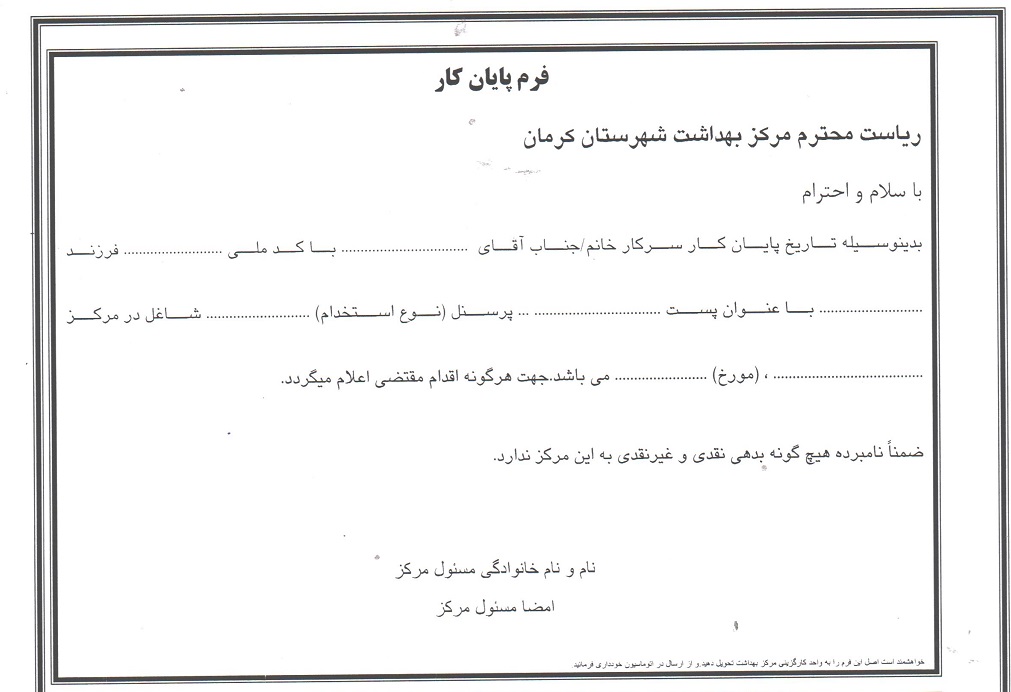 فرم پایان کار
ریاست محترم مرکز بهداشت شهرستان کرمان
با سلام و احترام
بدینوسیله تاریخ پایان کار سرکار خانم/جناب آقای .............................. با کد ملی ........................ فرزند
......................... با عنوان پست .............................. ... پرسنل (نوع استخدام) ......................... شاغل در مرکز
.................................... ، (مورخ) ...................... می باشد.جهت هرگونه اقدام مقتضی اعلام میگردد.
ضمناً نامبرده هیچ گونه بدهی نقدی و غیرنقدی به این مرکز ندارد.
نام و نام خانوادگی مسئول مرکز
امضا مسئول مرکز
خواهشمند است اصل این فرم را به واحد کارگزینی مرکز بهداشت تحویل دهید.و از ارسال در اتوماسیون خودداری فرمائید.